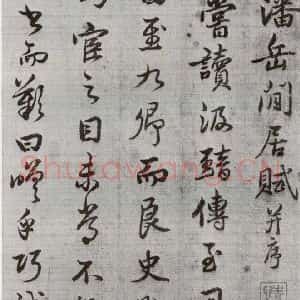 潘岳閒居賦并序
嘗讀汲黯傳至司
至九卿而良史
宦之目未嘗不
書而歎曰嗟乎巧